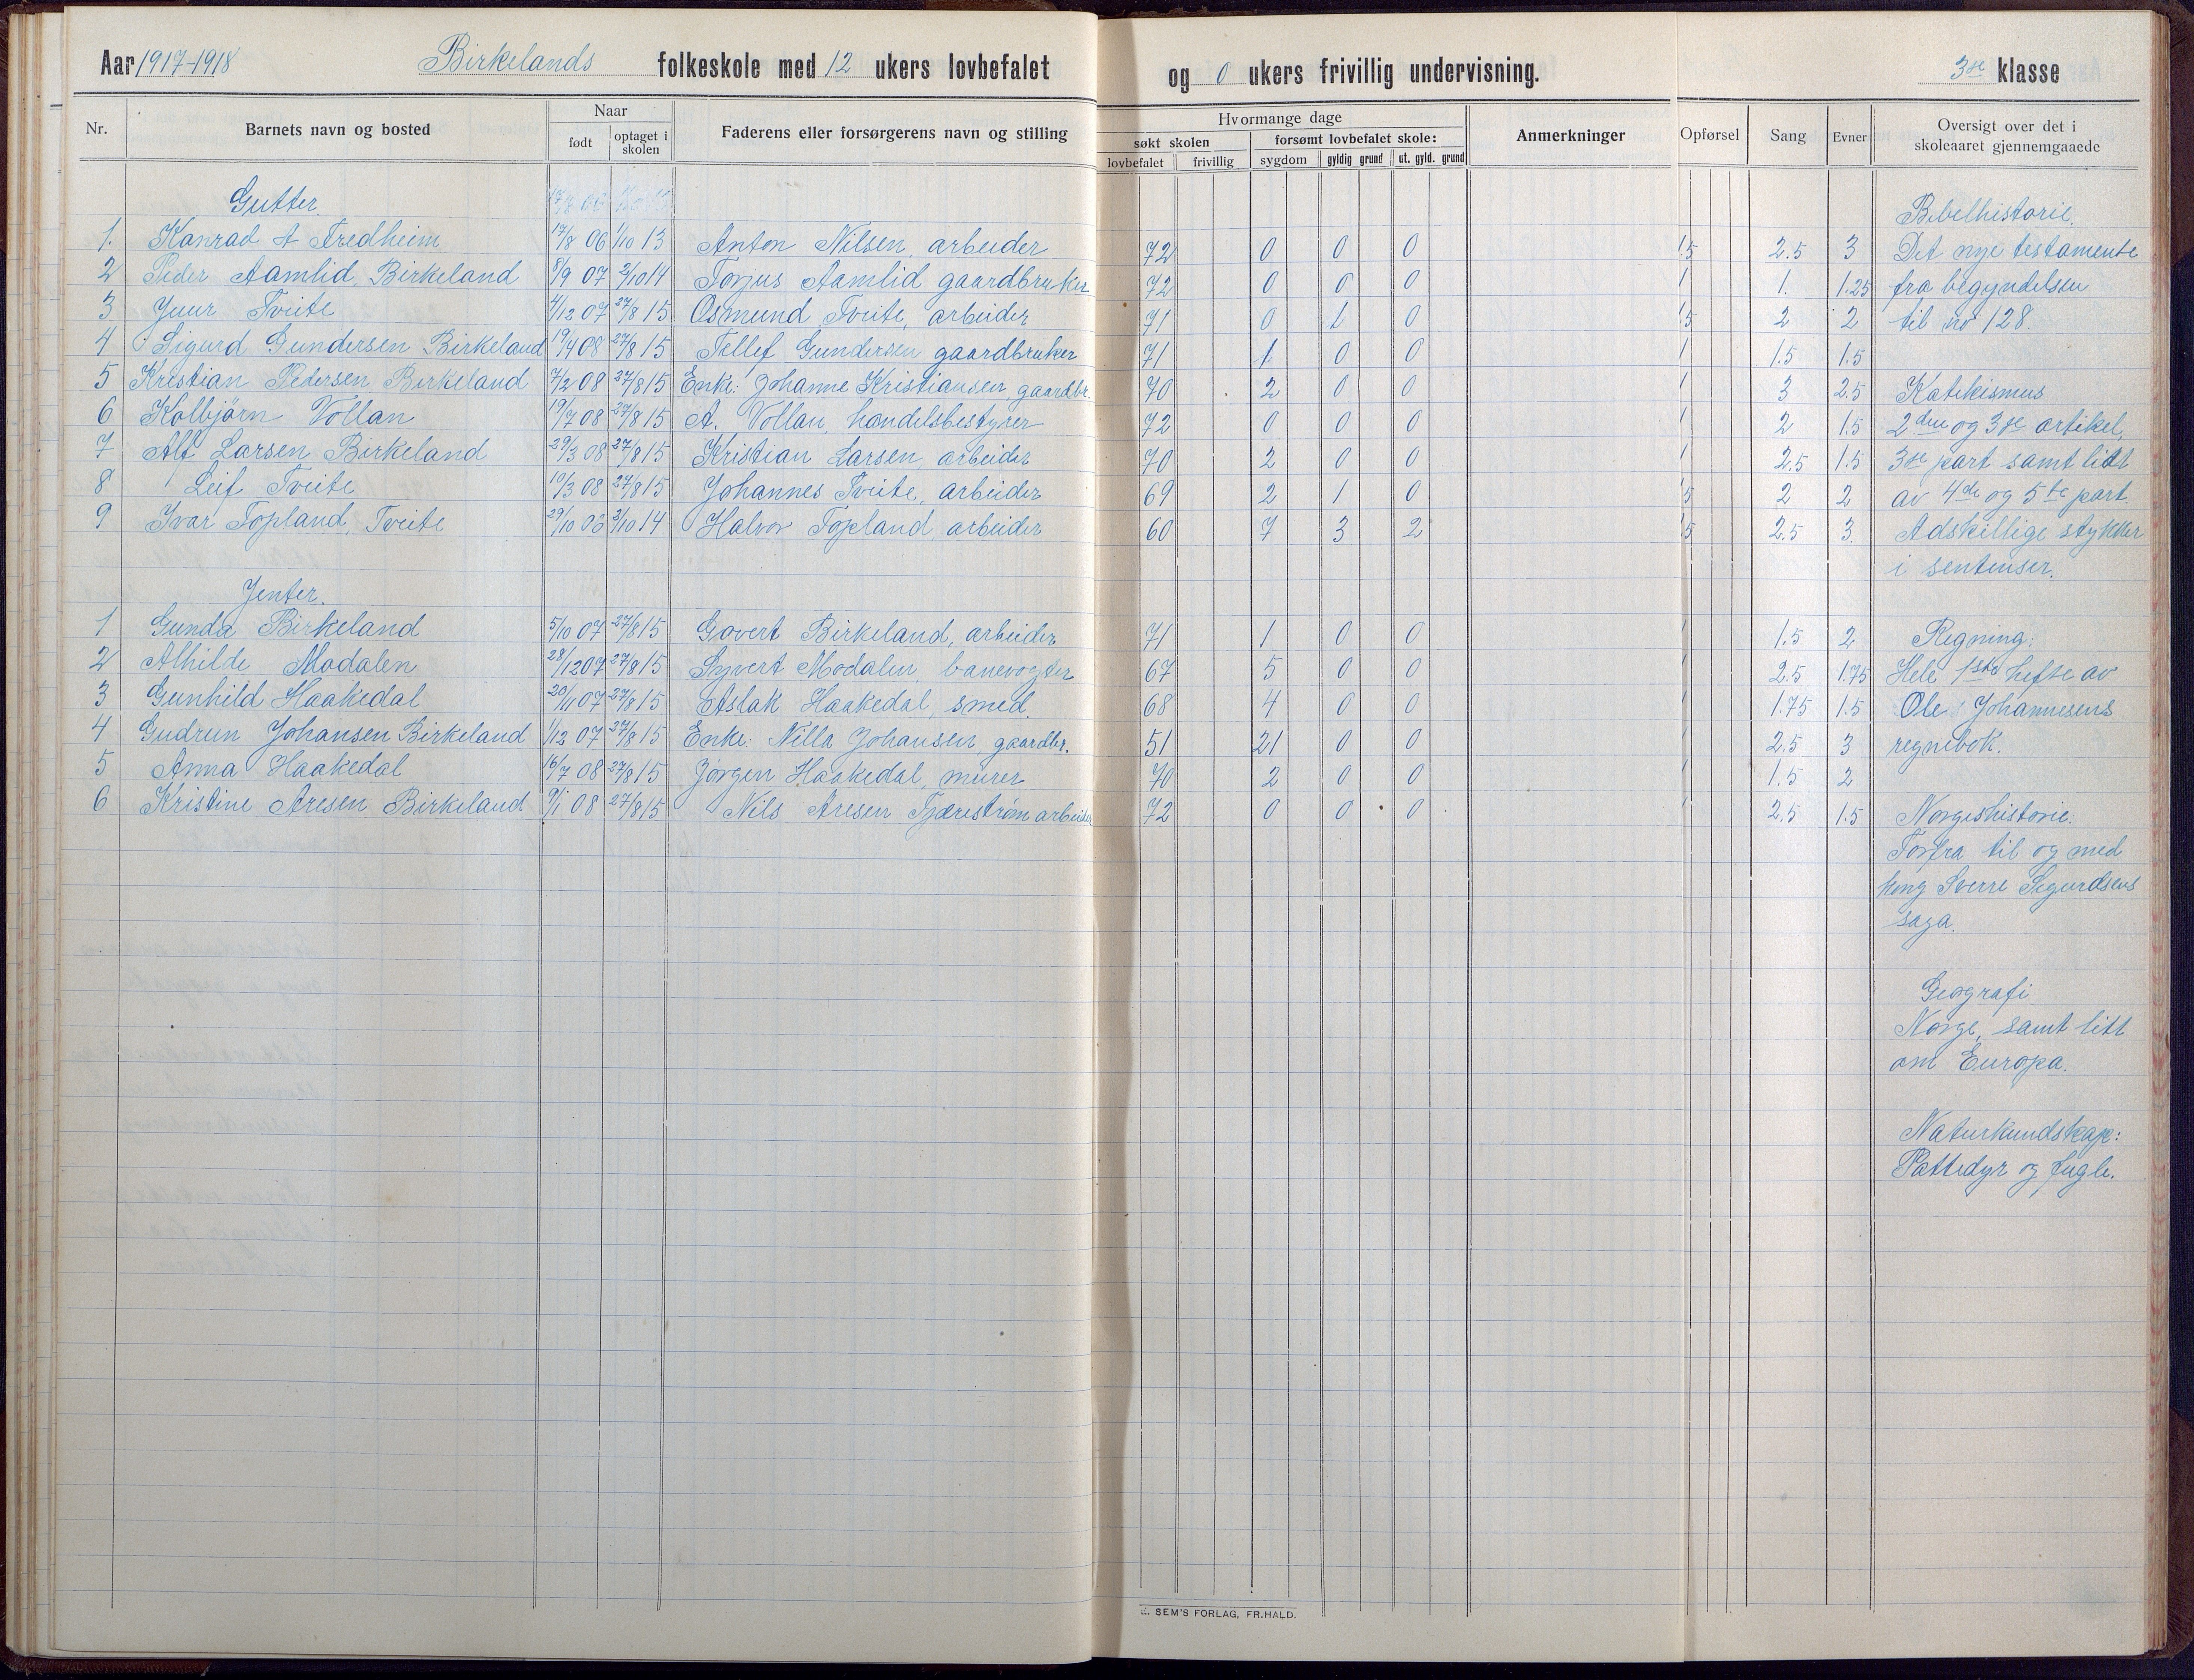 Aar 1917-1918 Birkelands folkeskole med 12 ukers lovbefalet og 0 ukers frivillig undervisning. 3dje klasse
Nr. Barnets navn og bosted Naar født optaget i skolen Faderens eller forsørgerens navn og stilling
Hvormange dage søkt skolen lovbefalet frivillig forsømt lovbefalet skole: sygdom gyldig grund ut. gyld. grund Anmerkninger
Opførsel Sang Evner Oversigt over det i skoleaaret gjennemgaaede
Gutter. Bibelhistorie.
1. Konrad A Fredheim 17/8 06 1/10 13 Anton Nilsen, arbeider 72 0 0 0 1.5 2.5 3 Det nye testamente
2 Peder Aamlid, Birkeland 8/9 07 2/10 14 Torjus Aamlid gaardbruker 72 0 0 0 1 1. 1.25 fra begyndelsen
3 Juur Tveite 4/12 07 27/8 15 Osmund Tveite, arbeider 71 0 1 0 1.5 2 2 til no 128.
4 Sigurd Gundersen Birkeland 19/4 08 27/8 15 Tellef Gundersen gaardbruker 71 1 0 0 1 1.5 1.5
5 Kristian Pedersen Birkeland 7/2 08 27/8 15 Enke: Johanne Kristiansen, gaardbr. 70 2 0 0 1 3 2.5 Katekismus
6 Kolbjörn Vollan 19/7 08 27/8 15 A. Vollan, handelsbestyrer 72 0 0 0 1 2 1.5 2den og 3dje artikel,
7 Alf Larsen Birkeland 29/3 08 27/8 15 Kristian Larsen, arbeider 70 2 0 0 1 2.5 1.5 3dje part samt litt
8 Leif Tveite 10/3 08 27/8 15 Johannes Tveite, arbeider 69 2 1 0 1.5 2 2 av 4de og 5te part.
9 Ivar Topland, Tveite 29/10 06 2/10 14 Halvor Topland, arbeider 60 7 3 2 1.5 2.5 3. Adskillige stykker
i sentenser.
Jenter.
1 Gunda Birkeland 5/10 07 27/8 15 Govert Birkeland, arbeider 71 1 0 0 1 1.5 2 Regning:
2 Alhilde Modalen 28/12 07 27/8 15 Syvert Modalen, banevogter 67 5 0 0 1 2.5 1.75 Hele 1ste hefte av
3 Gunhild Haakedal 20/11 07 27/8 15 Aslak Haakedal, smed. 68 4 0 0 1 1.75 1.5 Ole Johannesens
4 Gudrun Johansen Birkeland 1/12 07 27/8 15 Enke: Nilla Johansen, gaardbr. 51 21 0 0 1 2.5 3 regnebok.
5 Anna Haakedal 16/7 08 27/8 15 Jörgen Haakedal, murer 70 2 0 0 1 1.5 2
6 Kristine Aresen Birkeland 9/1 08 27/8 15 Nils Aresen Tjærestrøm arbeider 72 0 0 0 1 2.5 1.5 Norgeshistorie:
Forfra til og med
kong Sverre Sigurdsens
saga.
Geografi
Norge, samt litt
om Europa.
Naturkundskap:
Pattedyr og fugle.
E. SEM'S FORLAG, FR.HALD.